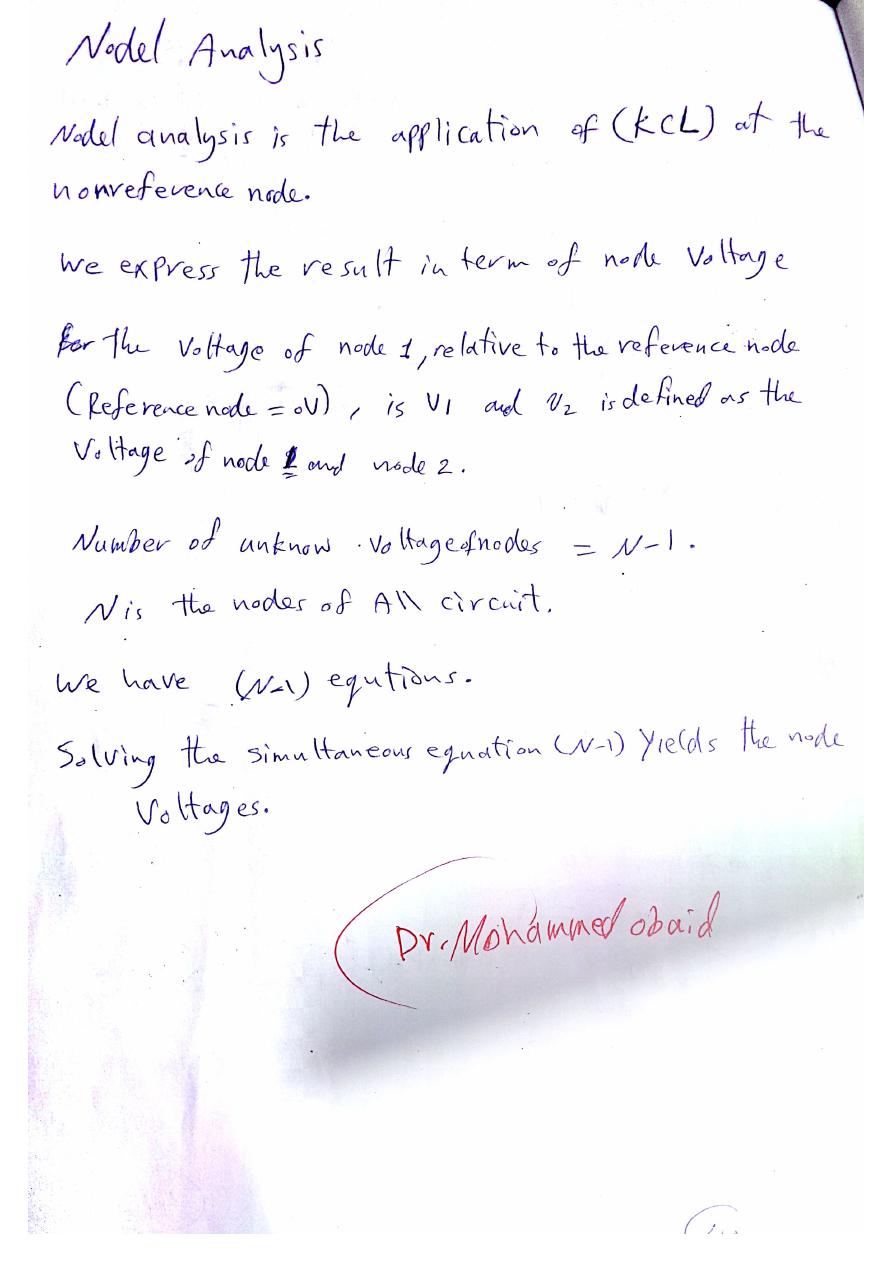 Nodel Analysis
Nodel analysis is the application of (KCL) at the
nonreference node.
We express the result in term of node Voltage
for the Voltage of node 1, relative to the reference node
(Reference node = 0V), is V1 and V2 is defined as the
Voltage of node 1 and node 2.
Number of unknow voltage of nodes = N-1.
N is the nodes of All circuit.
We have (N-1) equtions.
Solving the simultaneous equation (N-1) Yields the node
Voltages.
Dr. Mohammed obaid